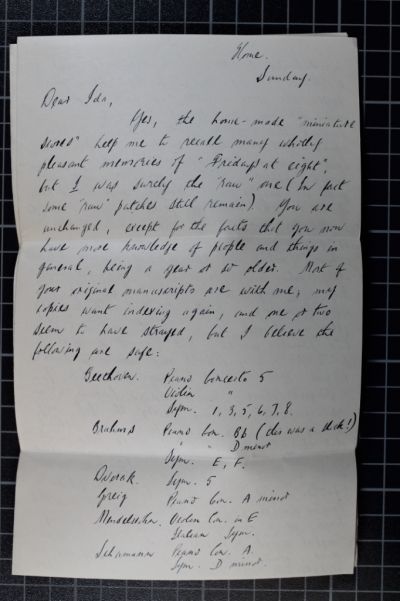 Home.
Sunday.
Dear Ida,
Yes, the home-made "miniature
scores" help me to recall many wholly
pleasant memories of "Fridays at eight",
but I was surely the "raw" one (in fact
some 'raw' patches still remain). You are
unchanged, except for the facts that you now
have more knowledge of people and things in
general, being a year or so older. Most of
your original manuscripts are with me; my
copies want indexing again, and one or two
seem to have strayed, but I believe the
following are safe:
Beethoven. Piano Concerto 5
Violin "
Sym. 1, 3, 5, 6, 7, 8.
Brahms Piano Con. Bb (this was a !)
" " D minor
Sym. E, F.
Dvorak. Sym. 5
Greig Piano Con. A minor
Mendelssohn. Violin Con. in E
Italian Sym.
Schumann Piano Con. A.
Sym. D minor.